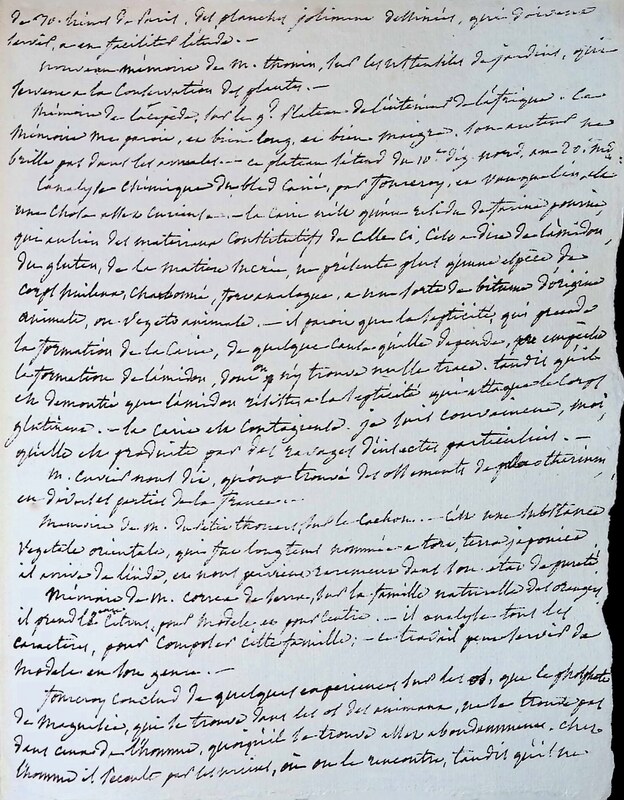 de 70. lieues de Paris, des planches joliment dessinées, qui doivent
servir, a en faciliter l'étude. —
nouveau mémoire de m. thouin, sur les ustensiles de jardins, qui
servent a la conservation des plantes. —
Mémoire de lacepède, sur le gd. plateau de l'intérieur de l'afrique. Ce
Mémoire me paroit, et bien long, et bien maigre. son auteur ne
brille pas dans les annales. — ce plateau s'étend du 10me. dég. nord, au 20.
l'analyse chimique du bled carié, par fourcroy, et vauquelin, est
une chose assez curieuse. — la carie n'est qu'un résidu de farine pourrie
qui au lien des materiaux constitutifs de celle ci, c'est a dire de l'amidon,
du gluten, de la matière sucrée, ne présente plus qu'une espèce de
corps huileux, charbonné, fort analogue, a une sorte de bitume d'origine
animale, ou végéto animale. — il paroit que la septicité, qui précède
la formation de la carie, de quelque cause qu'elle dépende, empêche
la formation de l'amidon, dont on n'y trouve nulle trace. tandis qu'il
est démontré que l'amidon résiste a la septicité qui attaque le corps
glutineux. — la carie est contagieuse. je suis convaincue, moi,
qu'elle est produite par des ravages d'insectes particuliers. —
M. cuvier nous dit, qu'on a trouvé des ossements de
en diverses parties de la france. —
Memoire de M. du petit thouars, sur le cachou. — c'est une substance
végétale orientale, qui fut longtems nommée a tort, terra japonica
il arrive de l'inde, et nous parvient rarement dans son etat de pureté
Mémoire de M. correa de serra, sur la famille naturelle des oranges
il prend le genre citrus, pour modèle et pour centre. — il analyse tous les
caractères, pour composer cette famille; — ce travail peut servir de
modele en son genre. —
fourcroy conclud de quelques expériences sur les os, que le phosphate
de magnésie, qui se trouve dans les os des animaux, ne se trouve pas
dans ceux de l'homme, quoiqu'il se trouve assez abondamment. chez
l'homme il s'écoule par les urines, où on le rencontre, tandis qu'il ne